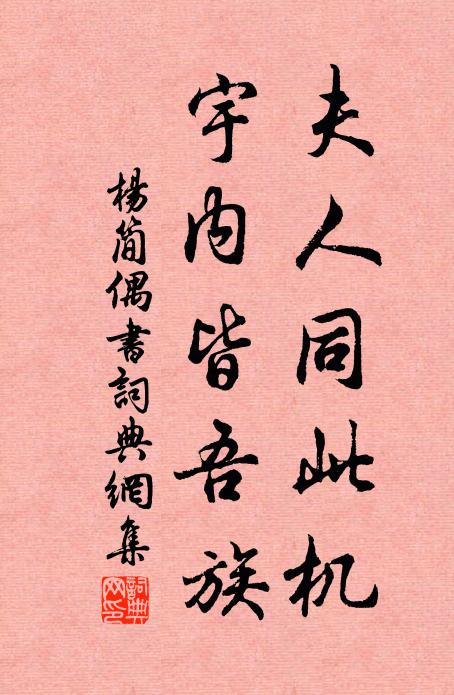 夫人同此机
宇内皆吾族
楊简偶書詞典網集
詞典
网印